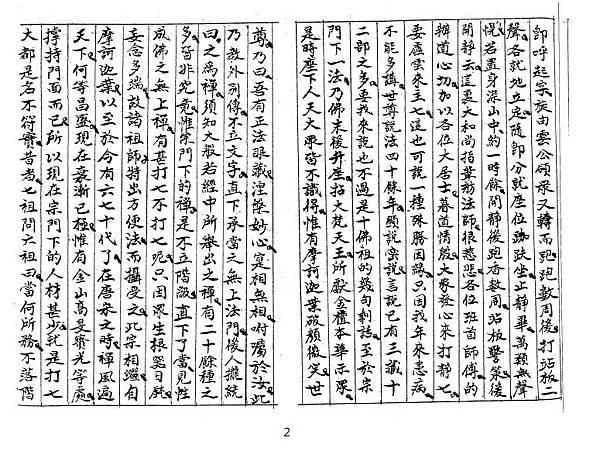 即呼起宗旋由雲公領眾又轉而跑跑數周後打站板二
聲各就地立定隨即分就座位跏趺坐止靜畢萬類無聲
恍若置身深山中約一時餘開靜後跑香數周站板警策後
開靜云這裏大和尚指葦舫法師很慈悲各位班首師傅的
辦道心切加以各位大居士慕道情殷大眾發心來打靜七
要虛雲來主七這也可說一種殊勝因緣只因我年來患病
不能多講世尊說法四十餘年顯說密說言說已有三藏十
二部之多要我來說也不過是十佛祖的幾句剩話至於宗
門下一法乃佛末後升座拈大梵天王所獻金檀木華示眾
是時座下人天大眾皆不識得惟有摩訶迦葉破顏微笑世
尊乃曰吾有正法眼藏涅槃妙心實相無相咐囑於汝此
乃教外別傳不立文字直下承當之無上法門後人攏統
曰之為禪須知大般若經中所舉出之禪有二十餘種之
多皆非究竟惟宗門下的禪是不立階級直下了當見性
成佛之無上禪有甚打七不打七呢只因眾生根器日鈍
妄念多端故諸祖師特出方便法而攝受之此宗相繼自
摩訶迦葉以至於今有六七十代了在唐宋之時禪風遍
天下何等昌盛現在衰漸已極惟有金山高旻寶光等處
撐持門面而已所以現在宗門下的人材甚少就是打七
大都是名不符實昔者七祖問六祖曰當何所務不落階
2